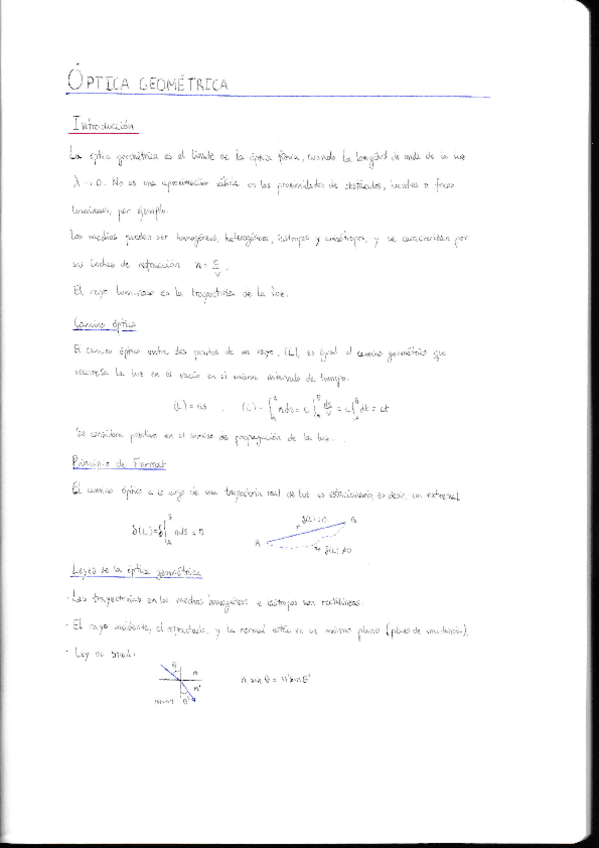 ÓPTICA GEOMÉTRICA
Introducción
La óptica geométrica es el límite de la óptica física, cuando la longitud de onda de la luz
λ → 0. No es una aproximación válida en las proximidades de obstáculos, bordes o focos
luminosos, por ejemplo.
Los medios pueden ser homogéneos, heterogéneos, isótropos y anisótropos, y se caracterizan por
su índice de refracción n = c/v.
El rayo luminoso es la trayectoria de la luz.
Camino óptico
El camino óptico entre dos puntos de un rayo, (L), es igual al camino geométrico que
recorrería la luz en el vacío en el mismo intervalo de tiempo.
(L) = ns , (L) = ∫_A^B n ds = c ∫_A^B ds/v = c ∫_A^B dt = ct
Se considera positivo en el sentido de propagación de la luz.
Principio de Fermat
El camino óptico a lo largo de una trayectoria real de luz es estacionario, es decir, un extremal
δ(L) = δ∫_A^B n ds = 0
δ(L)=0
B
A
δ(L)≠0
Leyes de la óptica geométrica
· Las trayectorias en los medios homogéneos e isótropos son rectilíneas.
· El rayo incidente, el refractado, y la normal están en un mismo plano (plano de incidencia).
· Ley de Snell:
θ n
n'
θ'
n sin θ = n' sin θ'